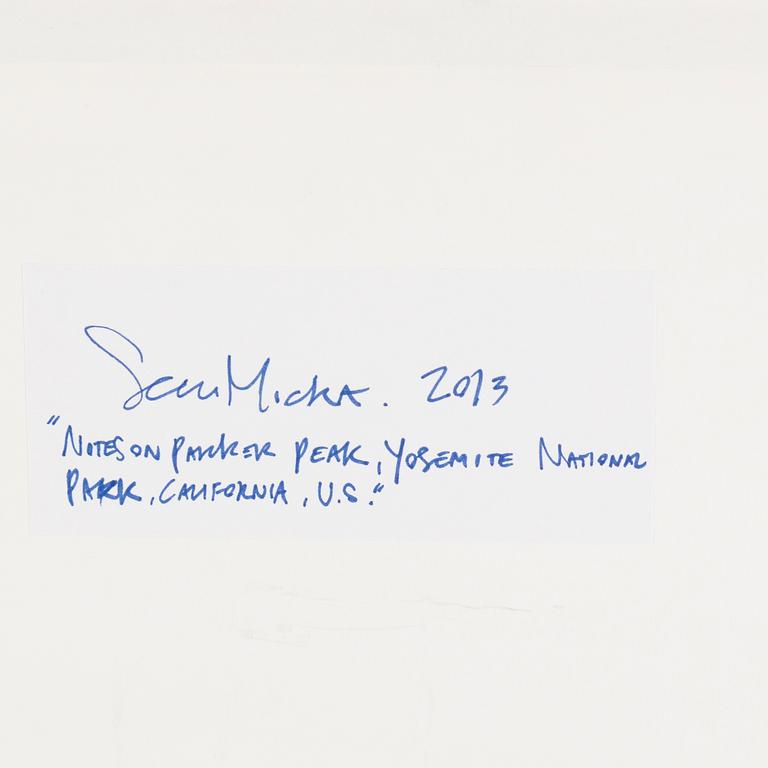 Sean Micka. 2013
"NOTES ON PARKER PEAK, YOSEMITE NATIONAL
PARK, CALIFORNIA, U.S."